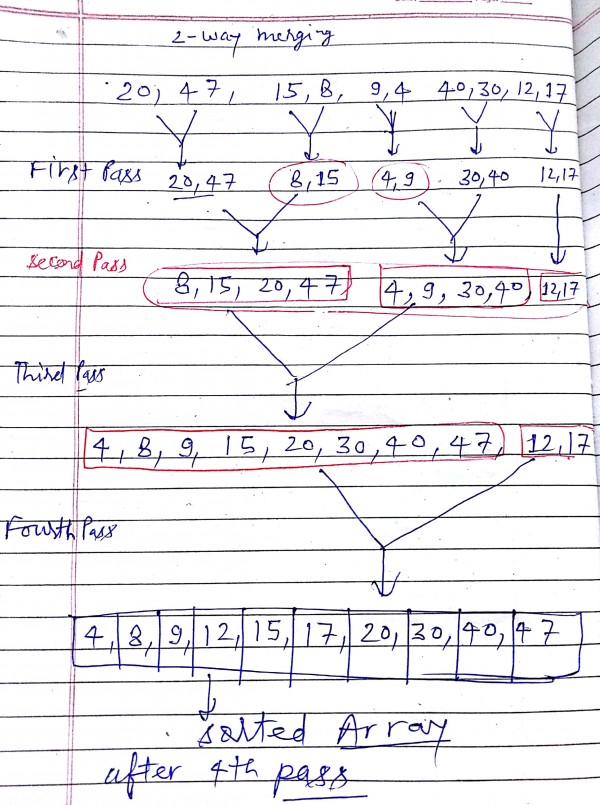 2-way merging
20, 47, 15, 8, 9,4 40,30,12,17
First Pass 20,47 8,15 4,9 30,40 12,17
Second Pass
8,15, 20,47 4, 9, 30,40, 12,17
Third Pass
4, 8, 9, 15, 20, 30, 40, 47, 12,17
Fourth Pass
4, 8, 9, 12, 15, 17, 20, 30, 40, 47
Sorted Array
after 4th pass